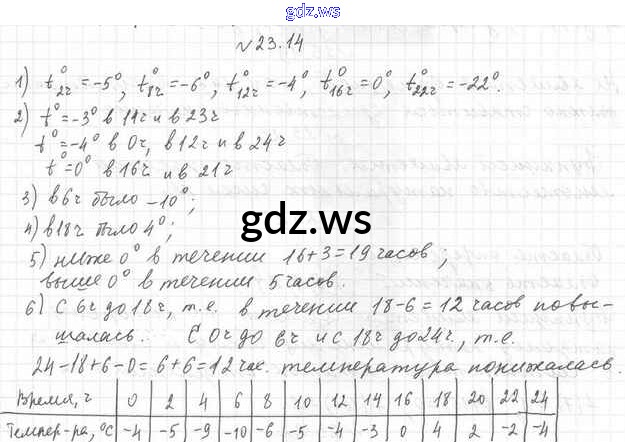 gdz.ws
№ 23.14
1) t°2ч = -5°, t°8ч = -6°, t°12ч = -4°, t°16ч = 0°, t°22ч = -22°.
2) t° = -3° в 14ч и в 23ч
t° = -4° в 0ч, в 12ч и в 24ч
t° = 0° в 16ч. и в 21ч
3) в 6ч было -10°;
gdz.ws
4) в 18ч было 4°;
5) ниже 0° в течении 16+3=19 часов;
выше 0° в течении 5 часов.
6) С 6ч до 18ч, т.е. в течении 18-6=12 часов повы-
шалась. С 0ч до 6ч и с 18ч до 24ч, т.е.
24-18+6-0=6+6=12 час. температура понижалась.
Время, ч 0 2 4 6 8 10 12 14 16 18 20 22 24
Темпер-ра, °С -4 -5 -9 -10 -6 -5 -4 -3 0 4 2 -2 -4